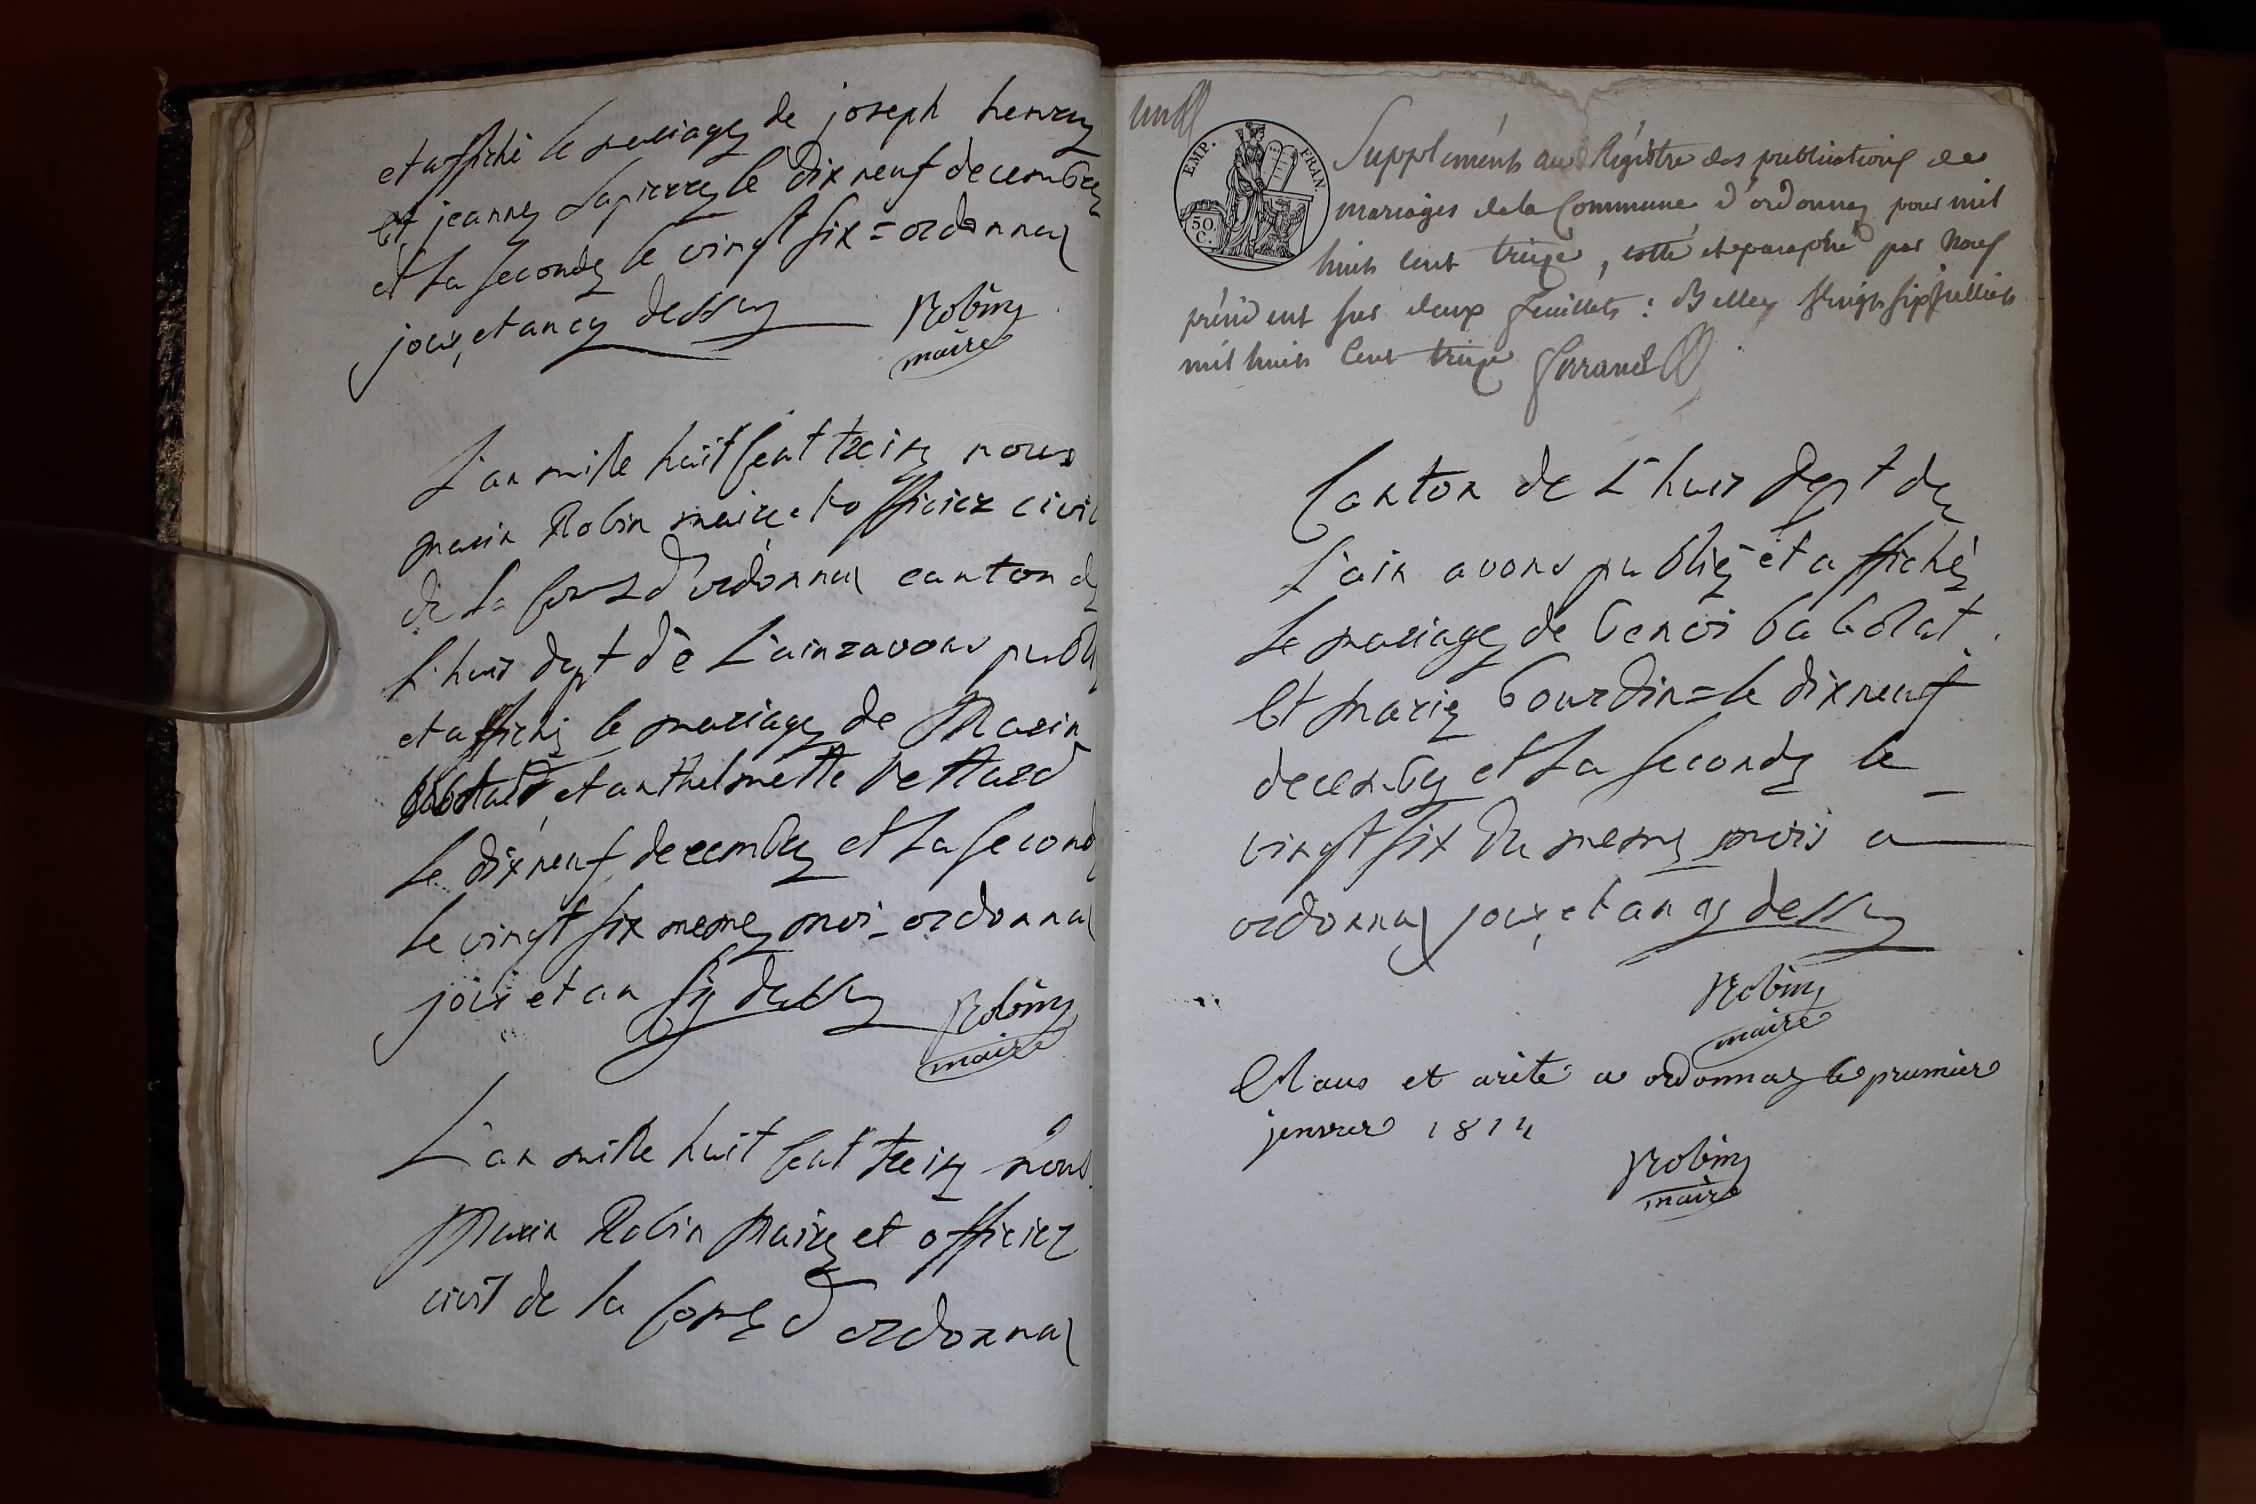 et affiché le mariage de joseph henry
et jeanne Lapierre le dix neuf decembre
et La seconde le vingt six = ordonnas
jour, et an cy dessu
Robin
maire
L'an mille huit Cent treize nous
marin Robin maire et officier civil
de La Com d'ordonnas canton de
L'huis dept dè L'ain avons publié
et affiché le mariage de Marin
et anthelmette
Le dix neuf decembre et La seconde
le vingt six meme moi - ordonnas
jour et an sy dessu
Robin
maire
L'an mille huit Cent treize nous
Marin Robin Maire et officier
civil de la Com d'ordonnas
un
EMP. FRAN.
50 C.
Supplément au Régistre des publications de
mariages de la Commune d'ordonnas pour mil
huit cent treize, cotté et paraphé par Nous
président sur deux feuillets : Belley vingt six juillet
mil huit cent treize
Canton de L'huis dept de
L'ain avons publié et affiché
Le mariage de benoi babolat
Et Marie Gourdin = le dix neuf
decembre et La seconde le
vingt six du meme mois a
ordonnas jour, et an cy dessu
Robin
maire
Claus et arêté a ordonnas le premier
jenvier 1814
Robin
maire